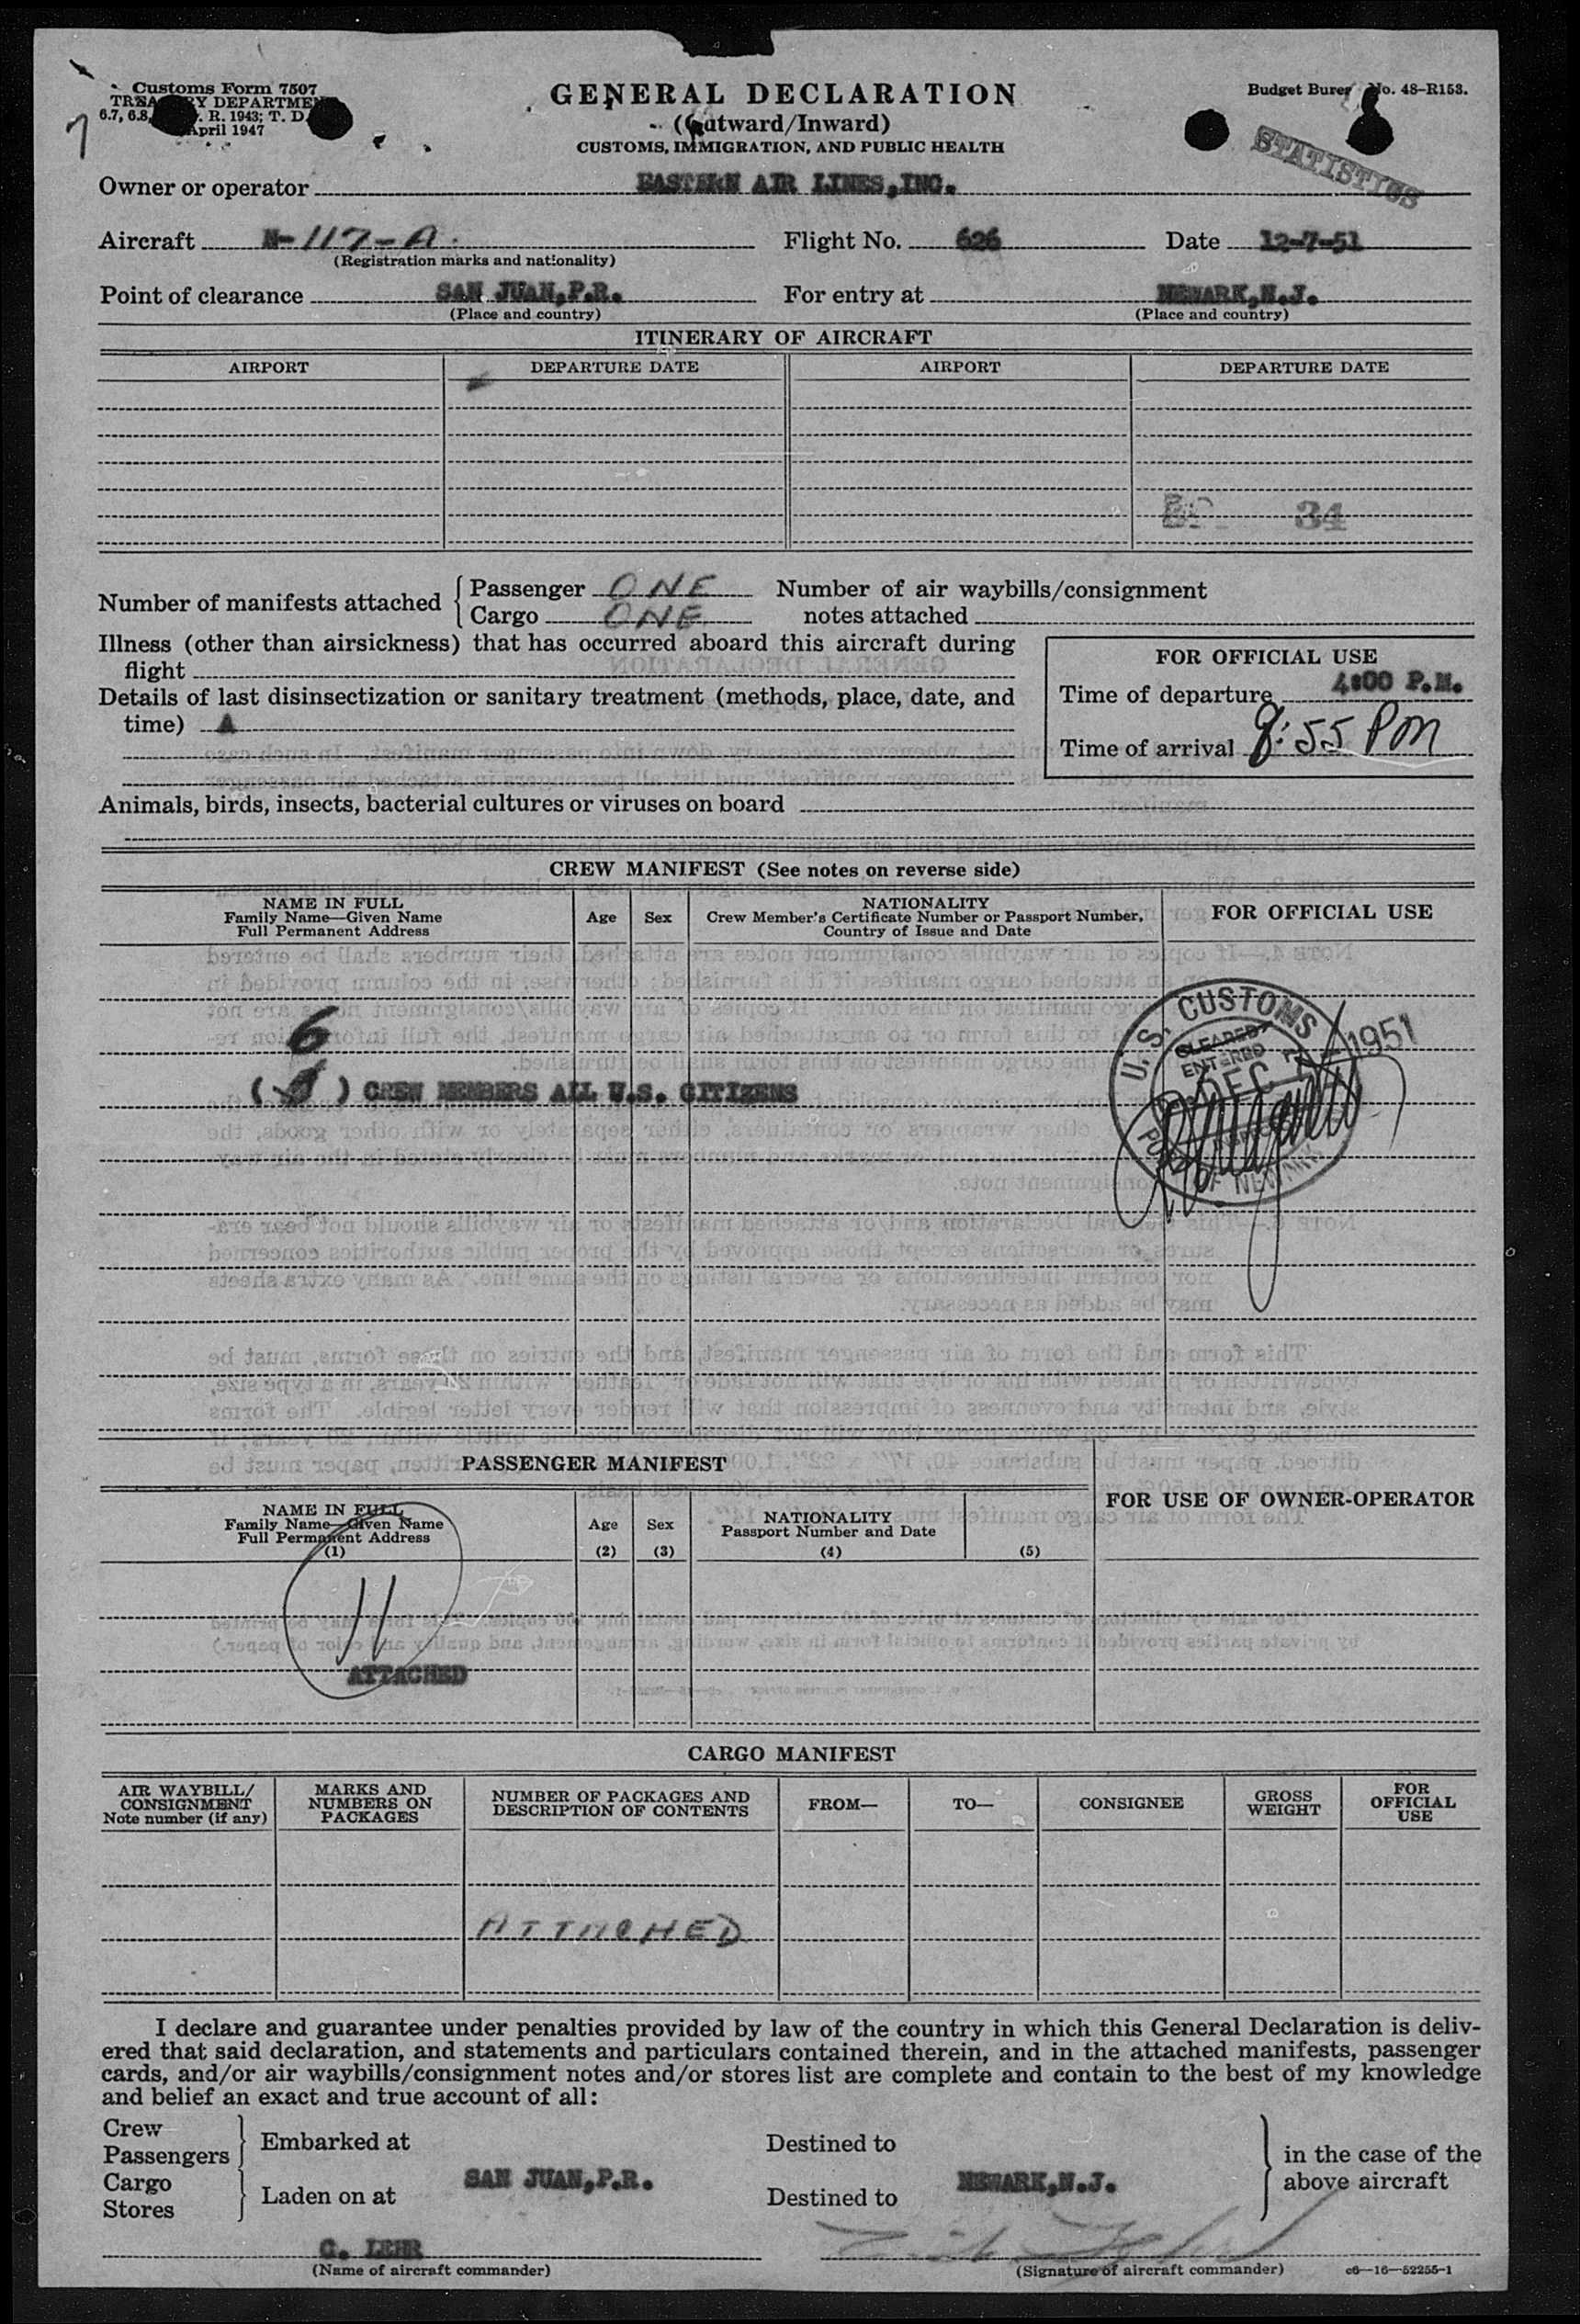 Customs Form 7507
TREASURY DEPARTMENT
6.7, 6.8, R. 1943; T. D.
April 1947
7
GENERAL DECLARATION
(Outward/Inward)
CUSTOMS, IMMIGRATION, AND PUBLIC HEALTH
Budget Bureau No. 48-R153.
STATISTICS
Owner or operator EASTERN AIR LINES,INC.
Aircraft N-117-A. Flight No. 626 Date 12-7-51
(Registration marks and nationality)
Point of clearance SAN JUAN,P.R. For entry at NEWARK,N.J.
(Place and country) (Place and country)
ITINERARY OF AIRCRAFT
AIRPORT DEPARTURE DATE AIRPORT DEPARTURE DATE
34
Number of manifests attached { Passenger ONE Number of air waybills/consignment
Cargo ONE notes attached
Illness (other than airsickness) that has occurred aboard this aircraft during
flight
Details of last disinsectization or sanitary treatment (methods, place, date, and
time) A
FOR OFFICIAL USE
Time of departure 4:00 P.M.
Time of arrival 8:55 PM
Animals, birds, insects, bacterial cultures or viruses on board
CREW MANIFEST (See notes on reverse side)
NAME IN FULL
Family Name—Given Name
Full Permanent Address
Age Sex
NATIONALITY
Crew Member's Certificate Number or Passport Number,
Country of Issue and Date
FOR OFFICIAL USE
6
( ) CREW MEMBERS ALL U.S. CITIZENS
U. S. CUSTOMS
CLEARED
ENTERED
DEC 1951
PORT OF NEWARK
PASSENGER MANIFEST
NAME IN FULL
Family Name—Given Name
Full Permanent Address
(1)
Age
(2)
Sex
(3)
NATIONALITY
Passport Number and Date
(4) (5)
FOR USE OF OWNER-OPERATOR
11
ATTACHED
CARGO MANIFEST
AIR WAYBILL/
CONSIGNMENT
Note number (if any)
MARKS AND
NUMBERS ON
PACKAGES
NUMBER OF PACKAGES AND
DESCRIPTION OF CONTENTS
FROM— TO— CONSIGNEE
GROSS
WEIGHT
FOR
OFFICIAL
USE
ATTACHED
I declare and guarantee under penalties provided by law of the country in which this General Declaration is deliv-
ered that said declaration, and statements and particulars contained therein, and in the attached manifests, passenger
cards, and/or air waybills/consignment notes and/or stores list are complete and contain to the best of my knowledge
and belief an exact and true account of all:
Crew
Passengers } Embarked at Destined to
Cargo
Stores } Laden on at SAN JUAN,P.R. Destined to NEWARK,N.J.
in the case of the
above aircraft
C. LEHR
(Name of aircraft commander) (Signature of aircraft commander) c6—16—52255-1